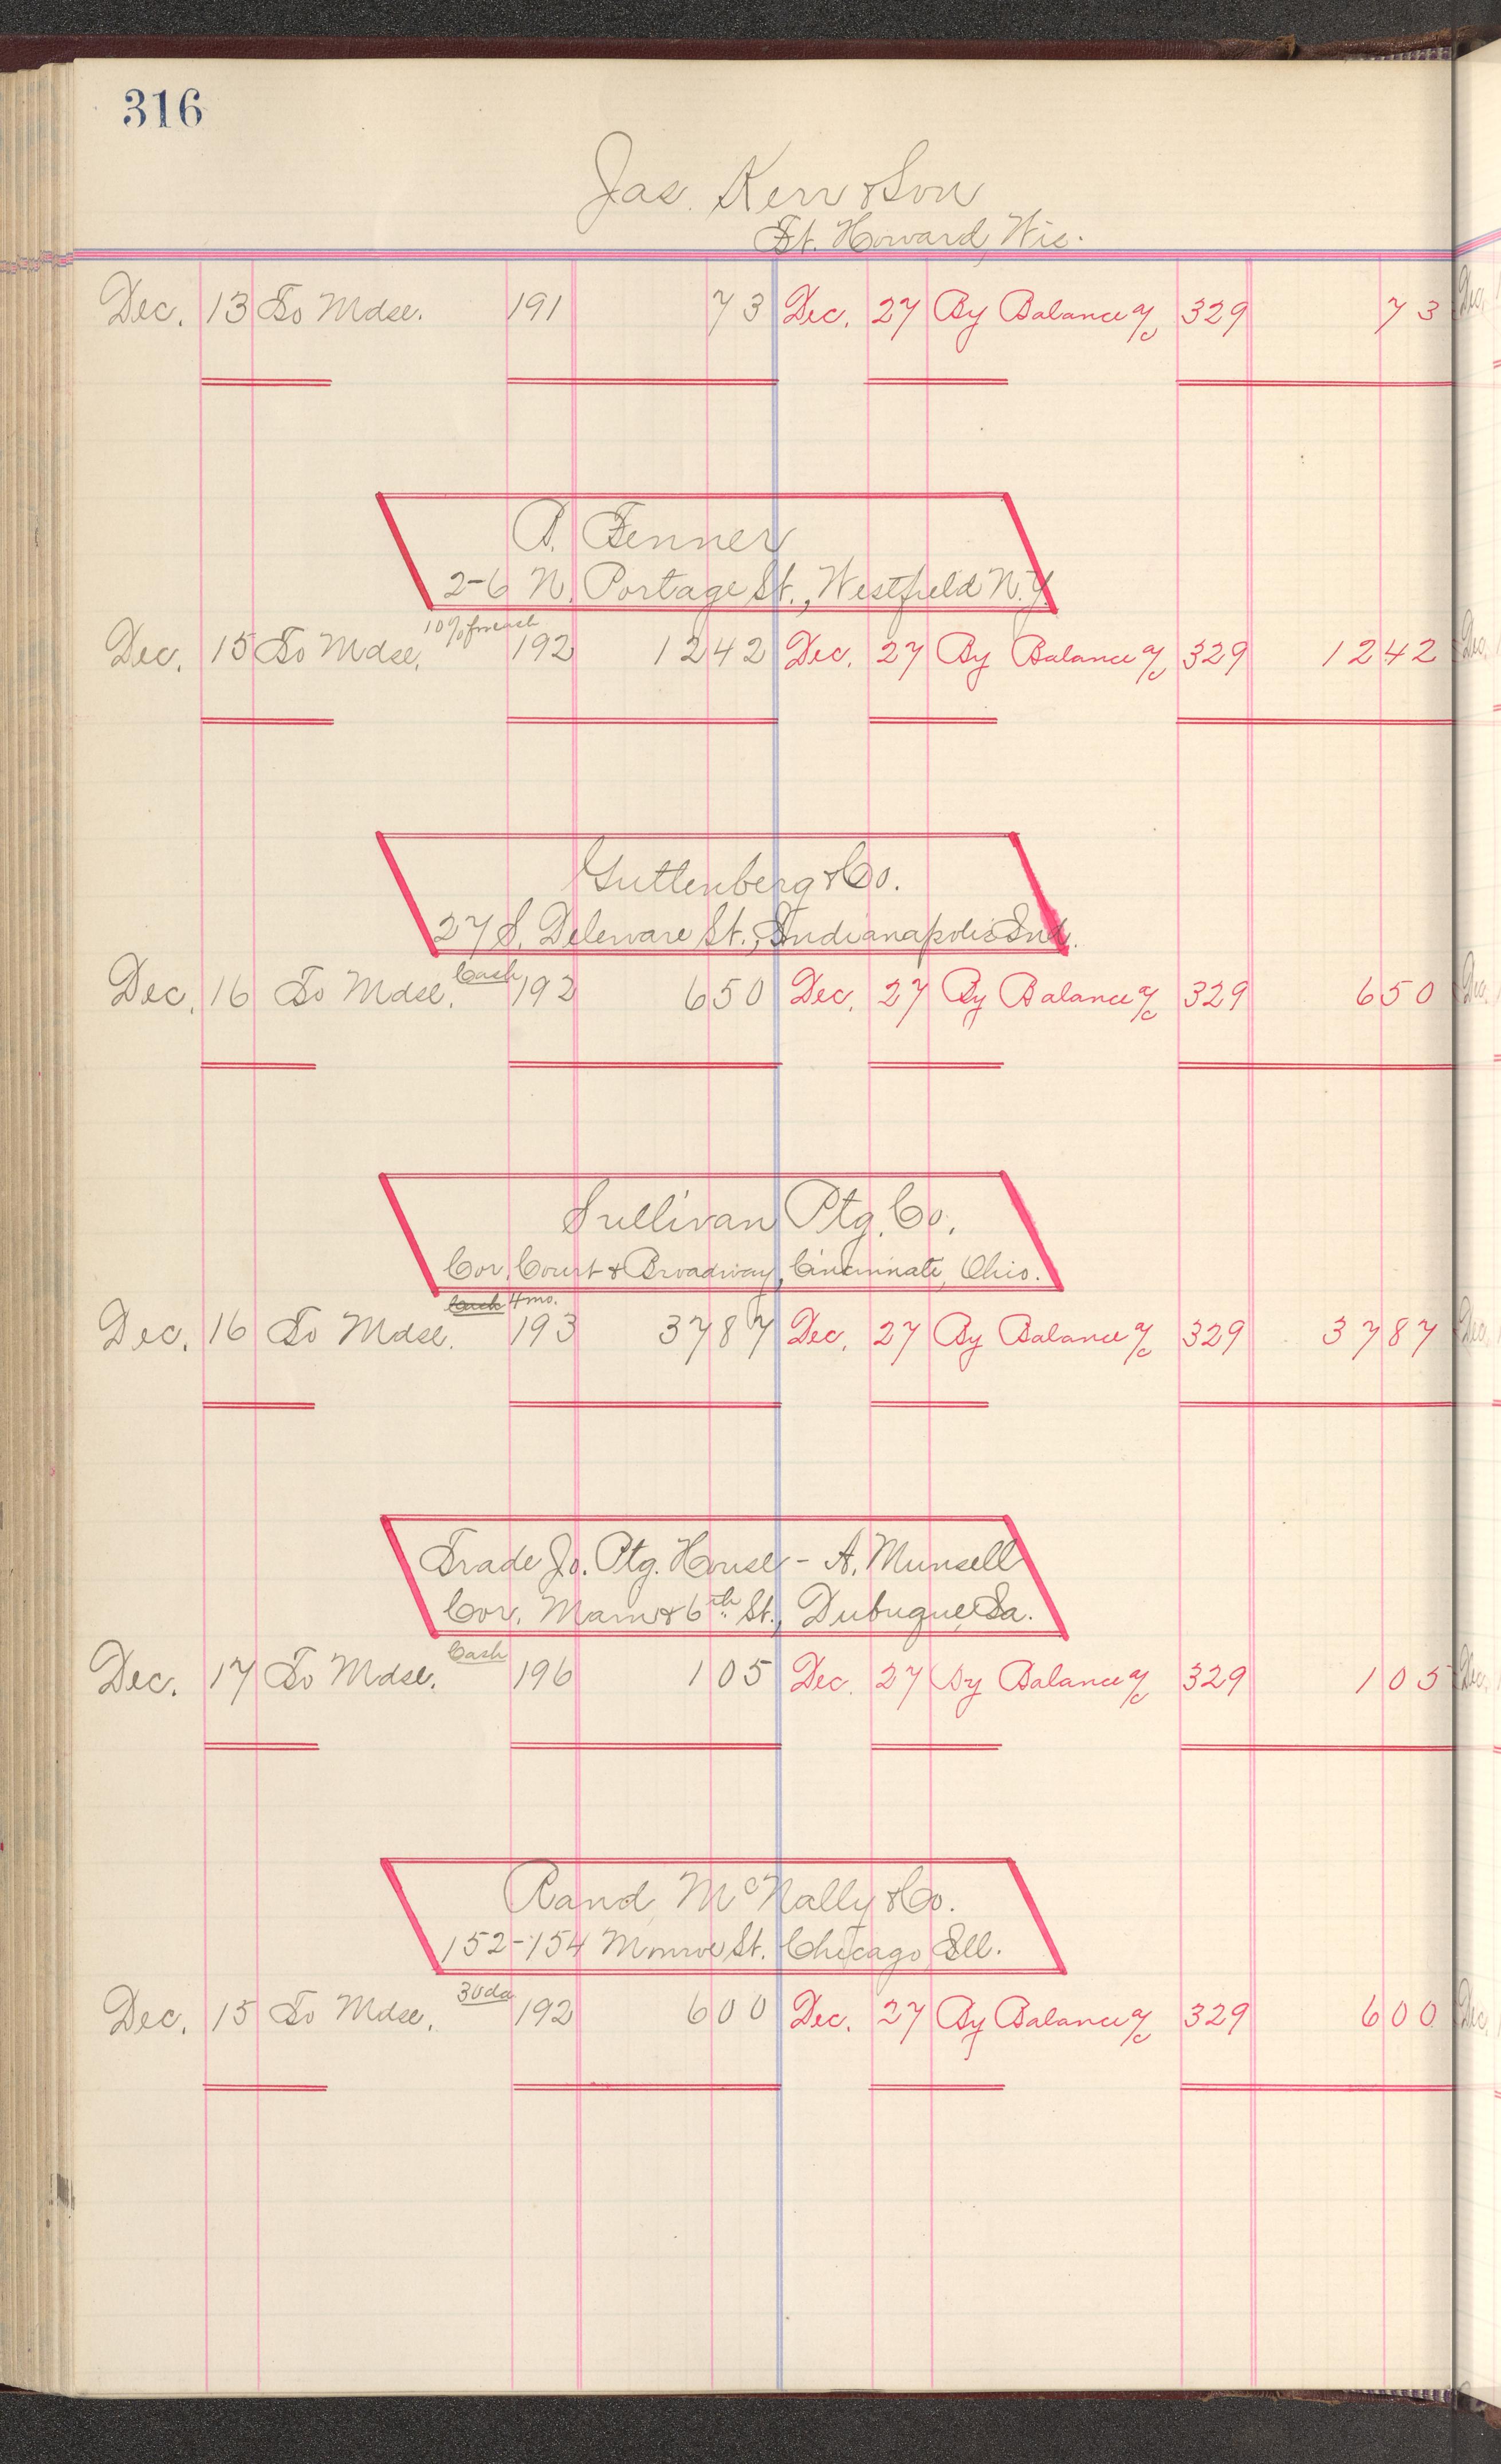 316
Jas. Kerr & Son
Ft. Howard, Wis.
Dec. 13 To Mdse. 191 73 Dec. 27 By Balance a/c 329 73
A. Fenner
2-6 N. Portage St., Westfield N.Y.
10% for cash
Dec. 15 To Mdse. 192 12 42 Dec. 27 By Balance a/c 329 12 42
Guttenberg & Co.
27 S. Deleware St., Indianapolis Ind.
Cash
Dec. 16 To Mdse. 192 6 50 Dec. 27 By Balance a/c 329 6 50
Sullivan Ptg. Co.
Cor. Court & Broadway, Cincinnati, Ohio.
Cash 4 mo.
Dec. 16 To Mdse. 193 37 87 Dec. 27 By Balance a/c 329 37 87
Trade Jo. Ptg. House - A. Munsell
Cor. Main & 6th St., Dubuque, Ia.
Cash
Dec. 17 To Mdse. 196 1 05 Dec. 27 By Balance a/c 329 1 05
Rand, McNally & Co.
152-154 Monroe St. Chicago, Ill.
30 da
Dec. 15 To Mdse. 192 6 00 Dec. 27 By Balance a/c 329 6 00